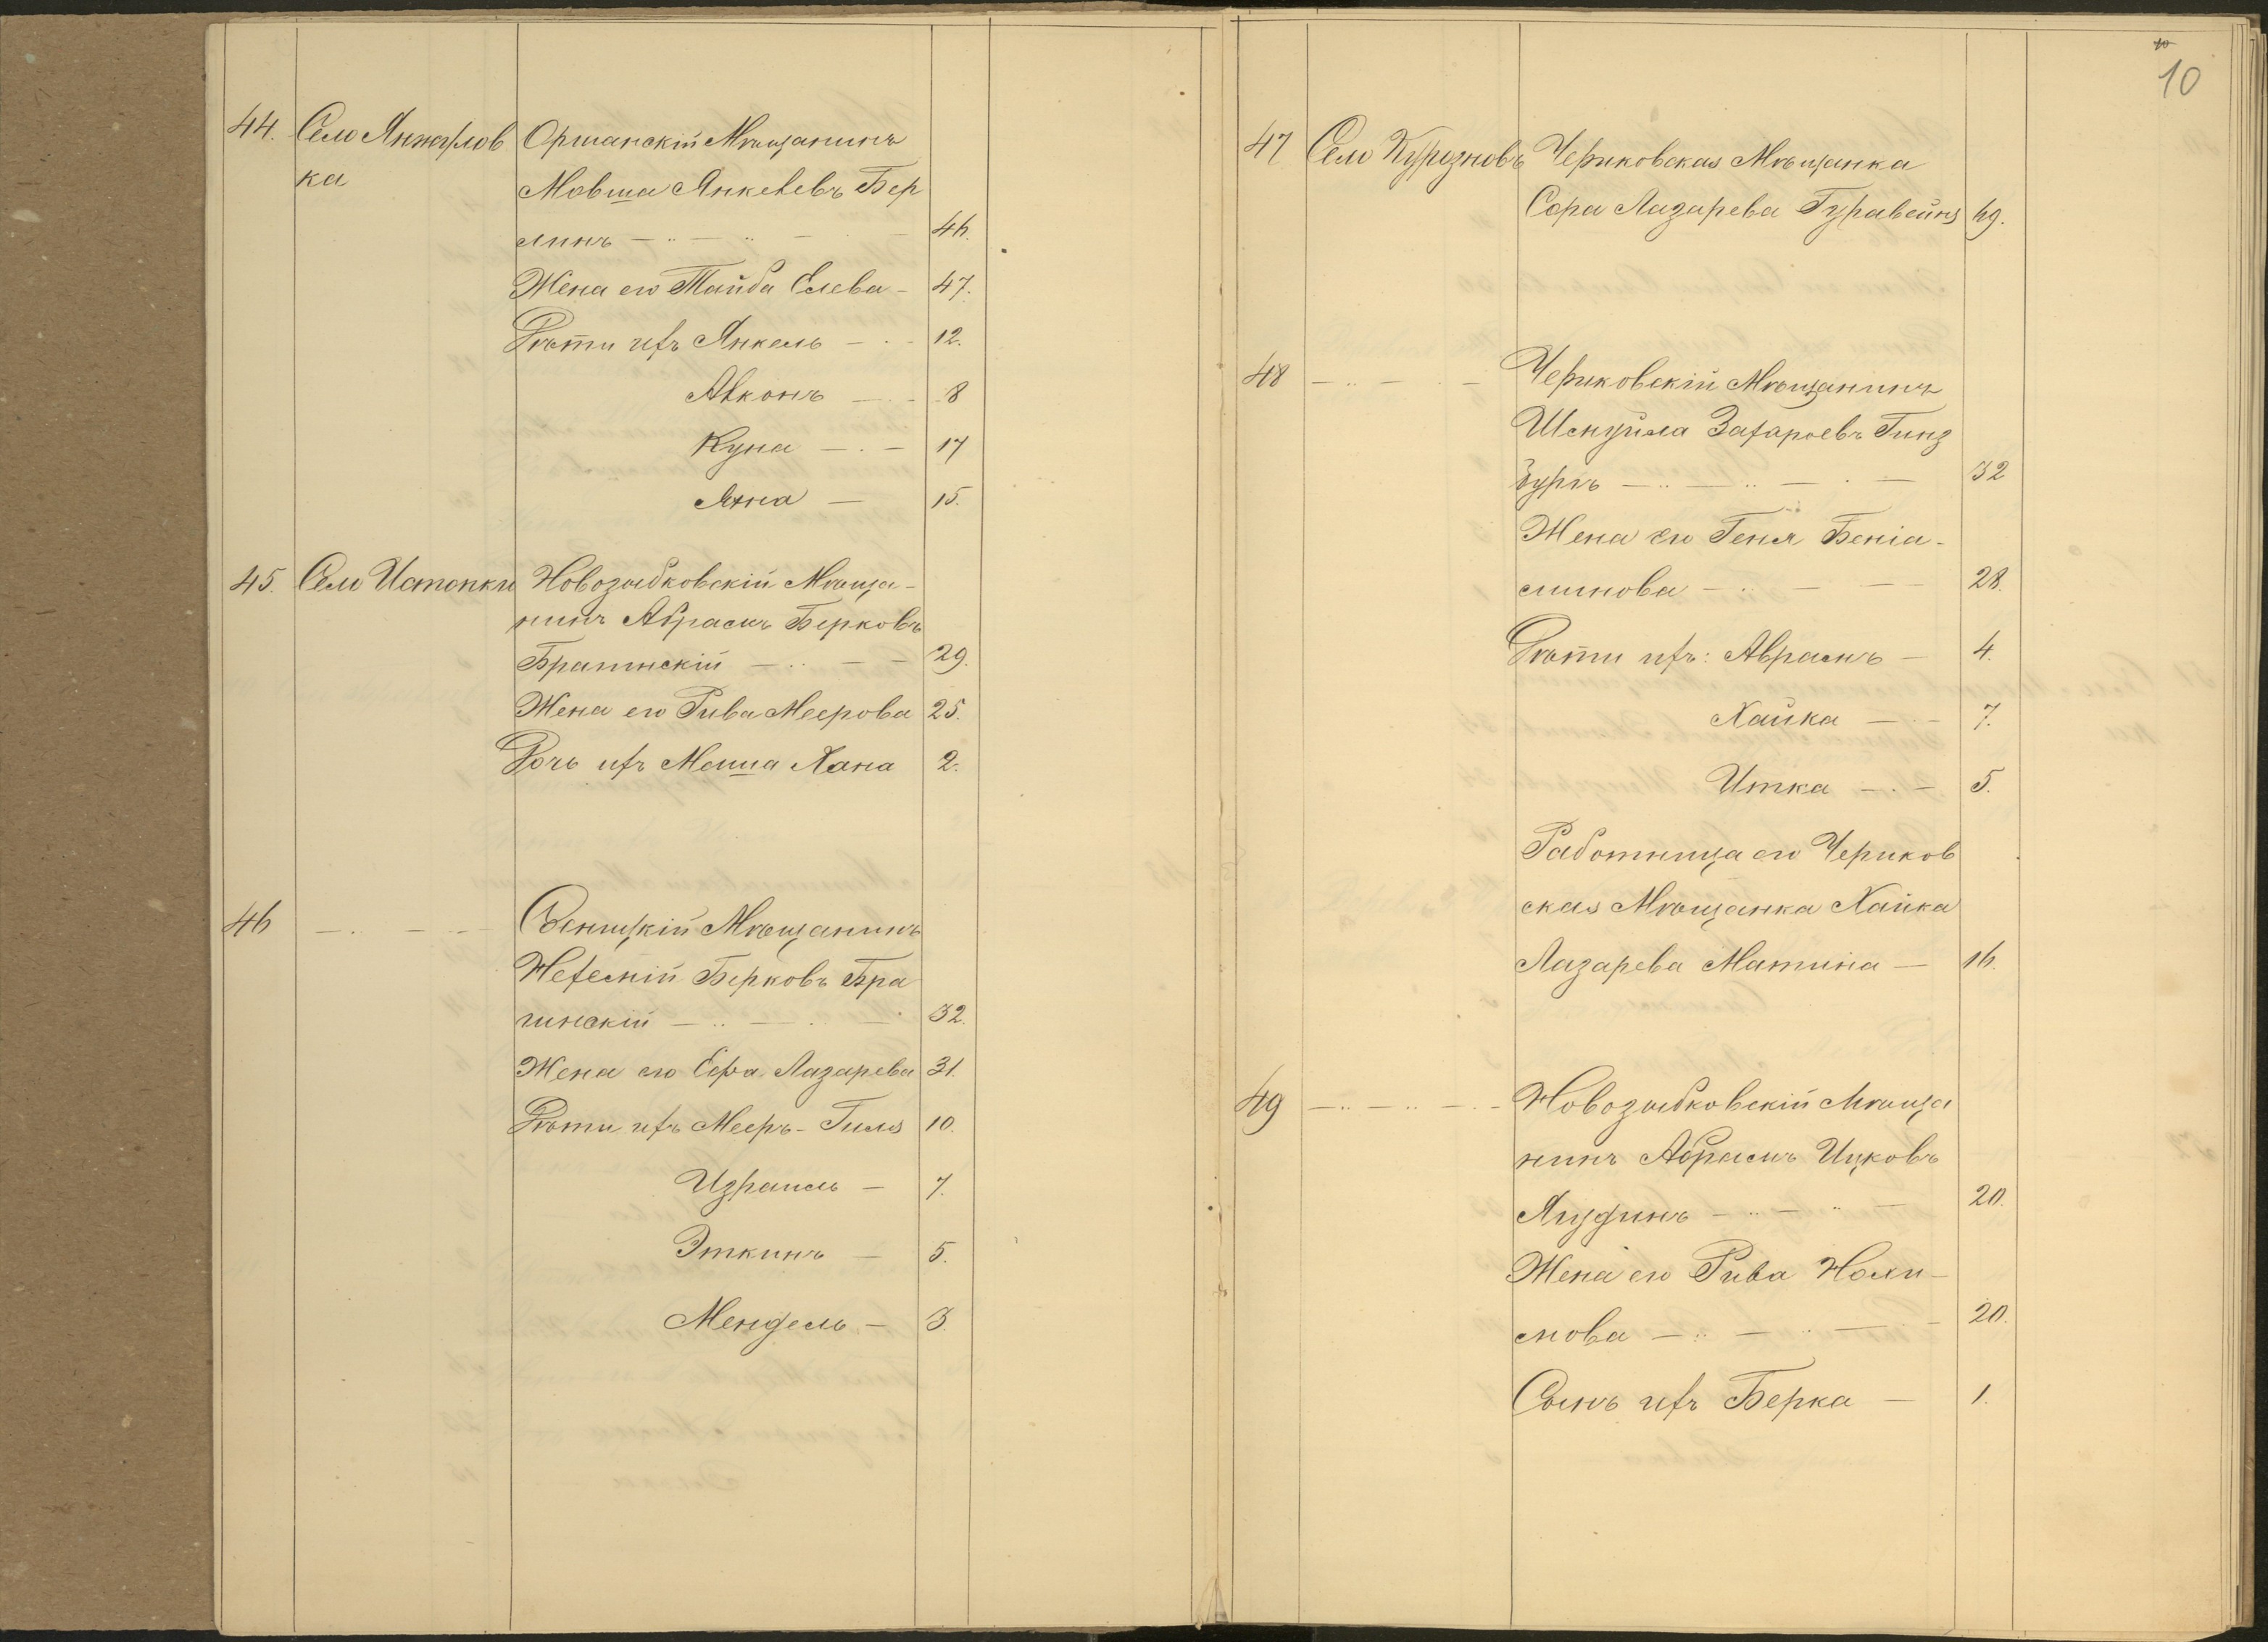 44. Село Янжулов Оршанскій Мѣщанинъ
ка Мовша Янкелевъ Бер
линъ — 46.
Жена его Тайба Елева — 47.
Дѣти ихъ Янкель — 12.
Абконъ — 8
Куна — 17
Яхна — 15.
45. Село Истопки Новозыбковскій Мѣща-
нинъ Абрамъ Берковъ
Брагинскій — 29.
Жена его Рива Меерова 25.
Дочь ихъ Меша Хана 2.
46 — Мѣщанинъ
Нехемій Берковъ Бра
гинскій — 32.
Жена его Лазарева 31.
Дѣти ихъ Мееръ-Гиля 10.
Израиль — 7.
Эткинъ — 5.
Мендель — 3.
10
10
47 Село Курозновъ Чериковская Мѣщанка
Сора Лазарева 69.
48 — Чериковскій Мѣщанинъ
Шмуйла Захаровъ Гинз
бургъ — 32
Жена его Геня Беніа-
минова — 28.
Дѣти ихъ: Авраамъ — 4.
Хайка — 7.
Итка — 5.
Работница его Чериков
ская Мѣщанка Хайка
Лазарева Матина — 16.
49 — Новозыбковскій Мѣща
нинъ Абрамъ Ицковъ
Ягудинъ — 20.
Жена его Рива Нохи-
мова — 20.
Сынъ ихъ Берка — 1.